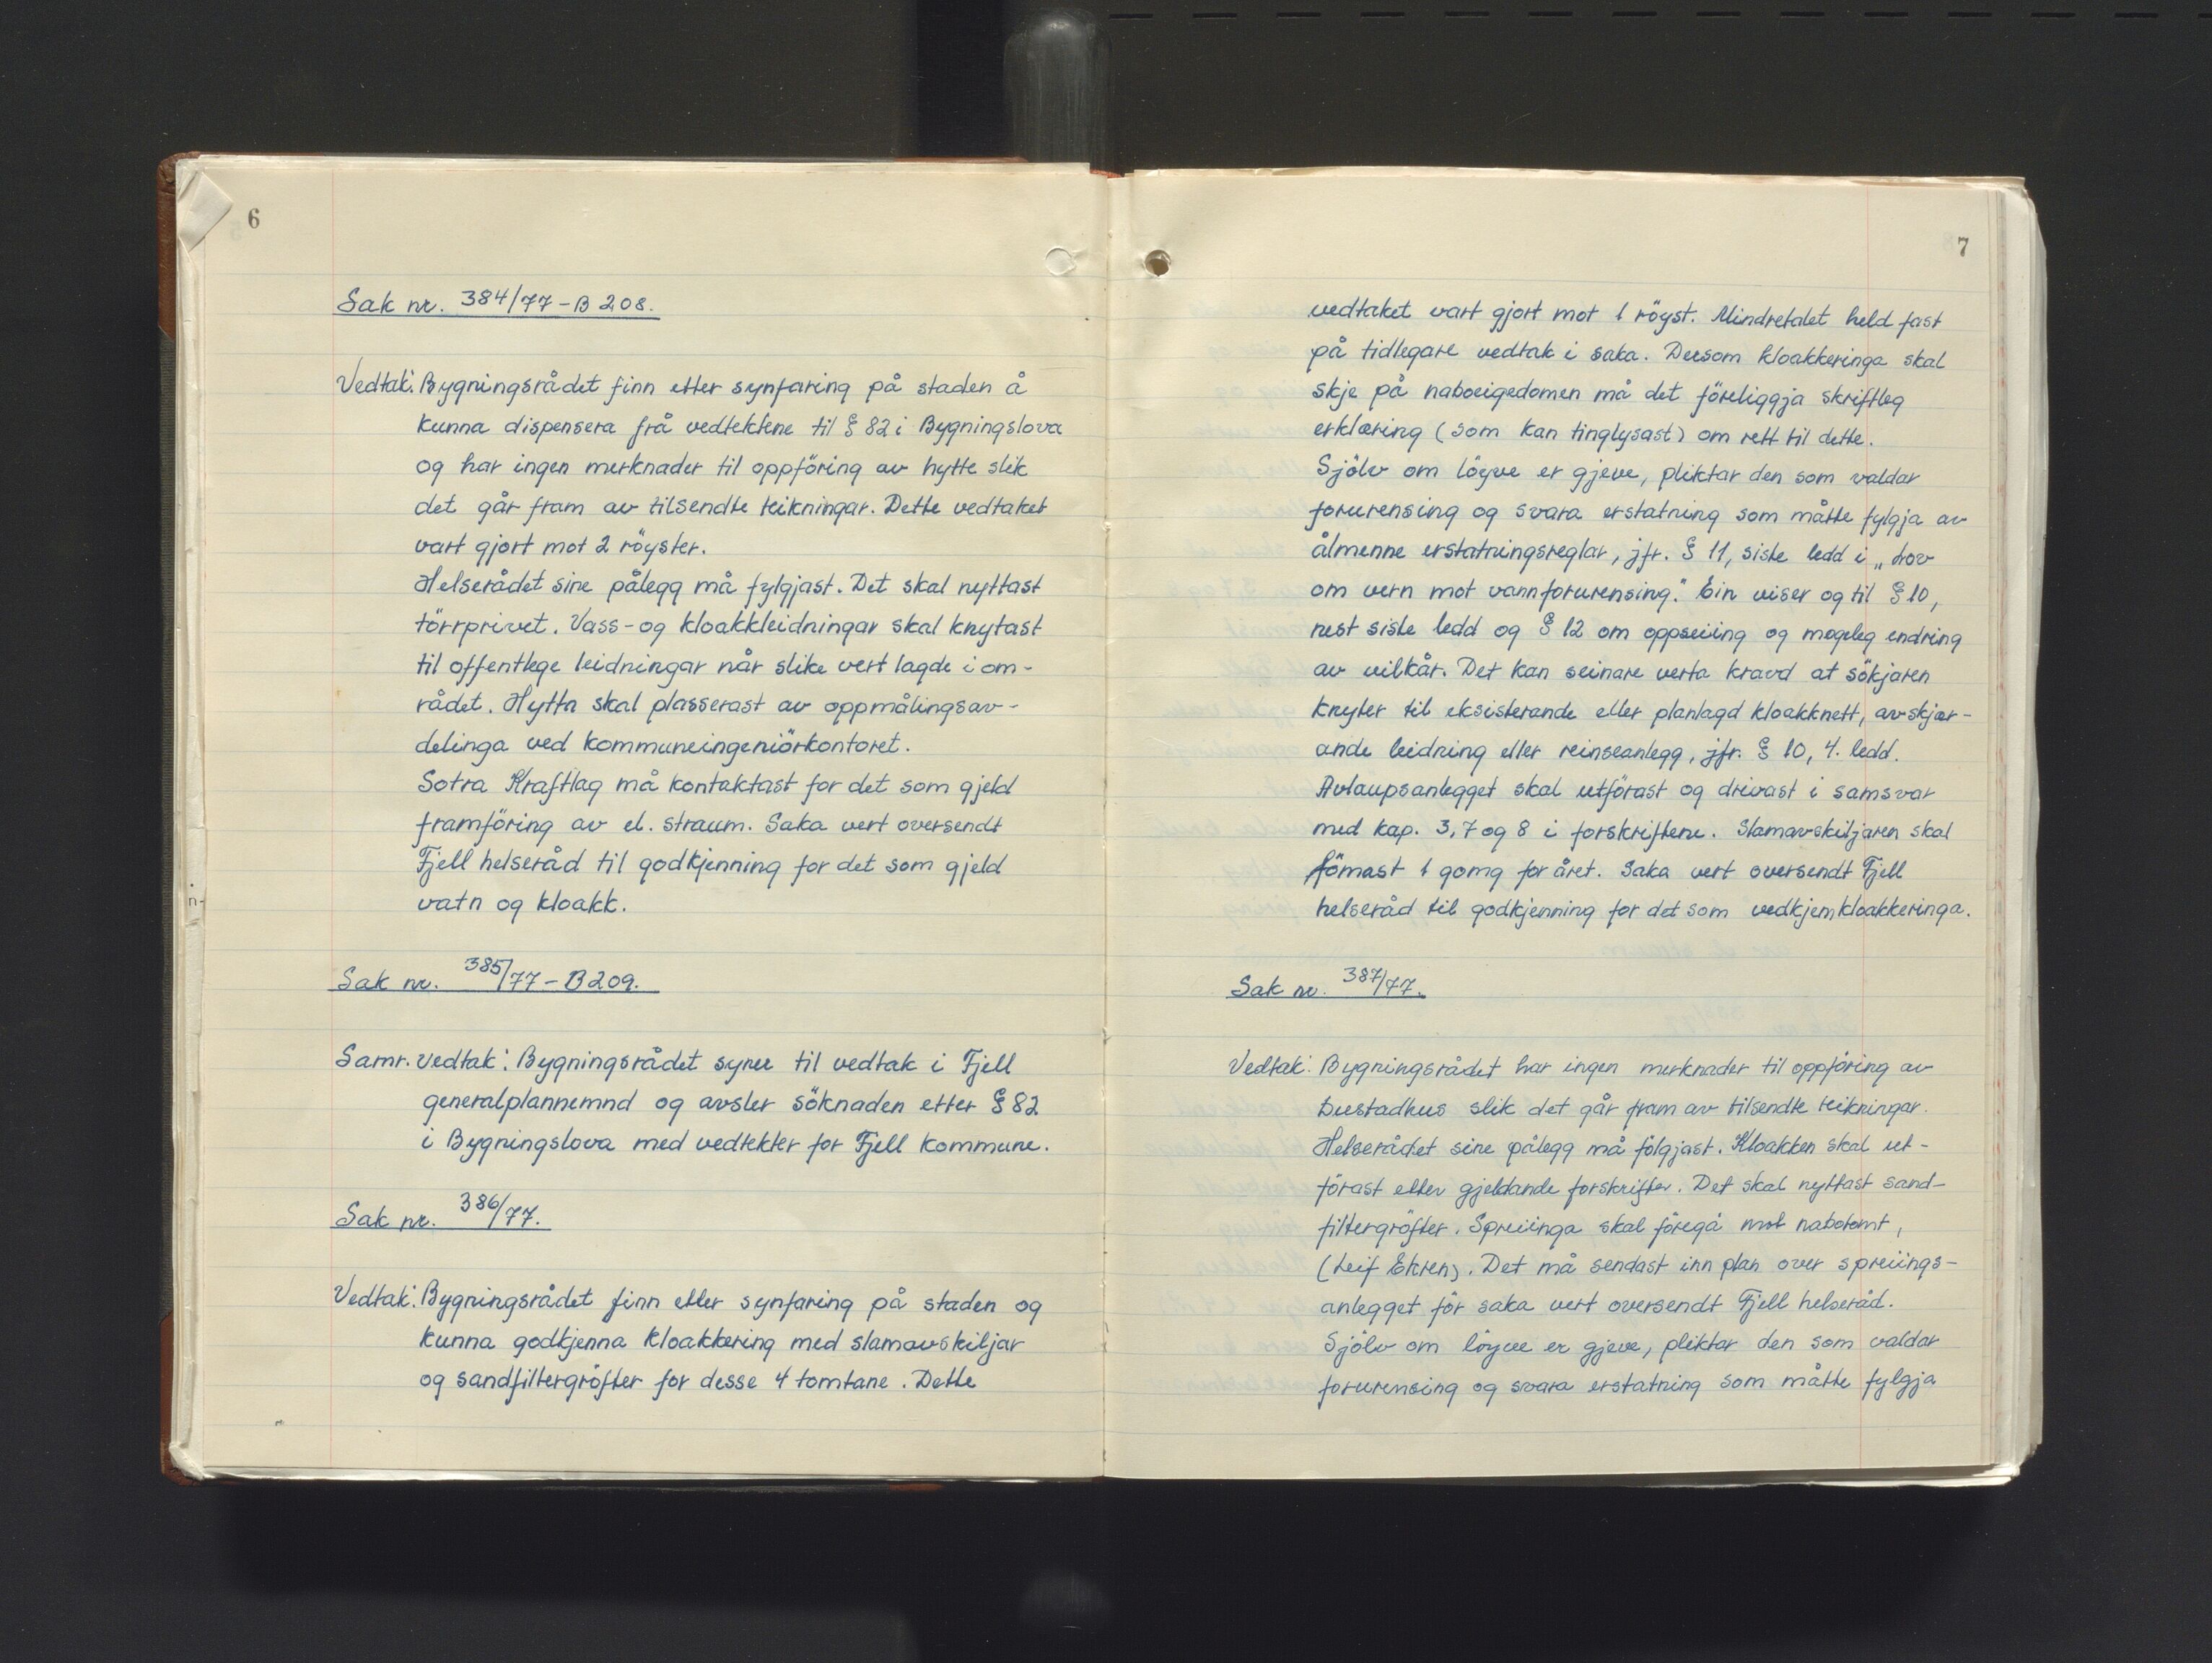 6
Sak nr. 384/77 - B 208.
Vedtak: Bygningsrådet finn etter synfaring på staden å
kunna dispensera frå vedtektene til § 82 i Bygningslova
og har ingen merknader til oppföring av hytte slik
det går fram av tilsendte teikningar. Dette vedtaket
vart gjort mot 2 röyster.
Helserådet sine pålegg må fylgjast. Det skal nyttast
törrprivet. Vass- og kloakkleidningar skal knytast
til offentlege leidningar når slike vert lagde i om-
rådet. Hytta skal plasserast av oppmålingsav-
delinga ved kommuneingeniörkontoret.
Sotra Kraftlag må kontaktast for det som gjeld
framföring av el. straum. Saka vert oversendt
Fjell helseråd til godkjenning for det som gjeld
vatn og kloakk.
Sak nr. 385/77 - B 209.
Samr. vedtak: Bygningsrådet syner til vedtak i Fjell
generalplannemnd og avslår söknaden etter § 82
i Bygningslova med vedtekter for Fjell kommune.
Sak nr. 386/77.
Vedtak: Bygningsrådet finn etter synfaring på staden og
kunna godkjenna kloakkering med slamavskiljar
og sandfiltergröfter for desse 4 tomtane. Dette
7
vedtaket vart gjort mot 1 röyst. Mindretalet held fast
på tidlegare vedtak i saka. Dersom kloakkeringa skal
skje på naboeigedomen må det föreliggja skriftleg
erklæring (som kan tinglysast) om rett til dette.
Sjölv om löyve er gjeve, pliktar den som valdar
forurensing og svara erstatning som måtte fylgja av
ålmenne erstatningsreglar, jfr. § 11, siste ledd i „Lov
om vern mot vannforurensing." Ein viser og til § 10,
nest siste ledd og § 12 om oppseiing og mogeleg endring
av vilkår. Det kan seinare verta kravd at sökjaren
knyter til eksisterande eller planlagd kloakknett, avskjær-
ande leidning eller reinseanlegg, jfr. § 10, 4. ledd.
Avlaupsanlegget skal utförast og drivast i samsvar
med kap. 3, 7 og 8 i forskriftene. Slamavskiljaren skal
tömast 1 gong for året. Saka vert oversendt Fjell
helseråd til godkjenning for det som vedkjem kloakkeringa.
Sak nr. 387/77.
Vedtak: Bygningsrådet har ingen merknader til oppföring av
bustadhus slik det går fram av tilsendte teikningar.
Helserådet sine pålegg må fölgjast. Kloakken skal ut-
förast etter gjeldande forskrifter. Det skal nyttast sand-
filtergröfter. Spreiinga skal föregå mot nabotomt,
(Leif Ekren). Det må sendast inn plan over spreiings-
anlegget för saka vert oversendt Fjell helseråd.
Sjölv om löyve er gjeve, pliktar den som valdar
forurensing og svara erstatning som måtte fylgja